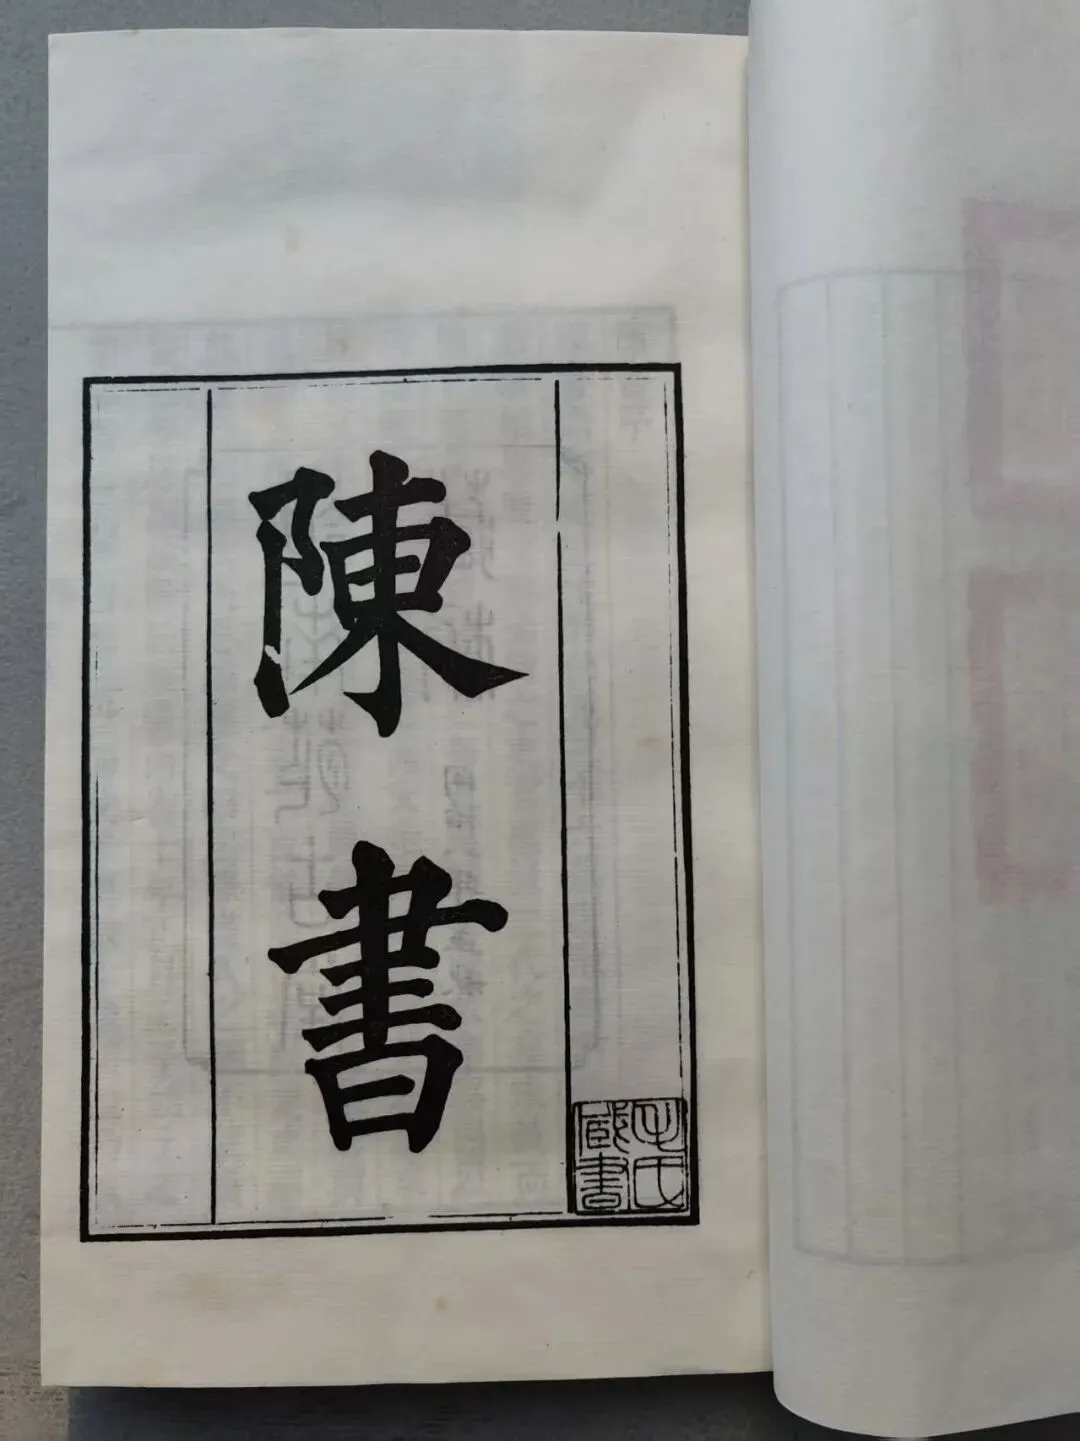 陳書
毛氏
藏書